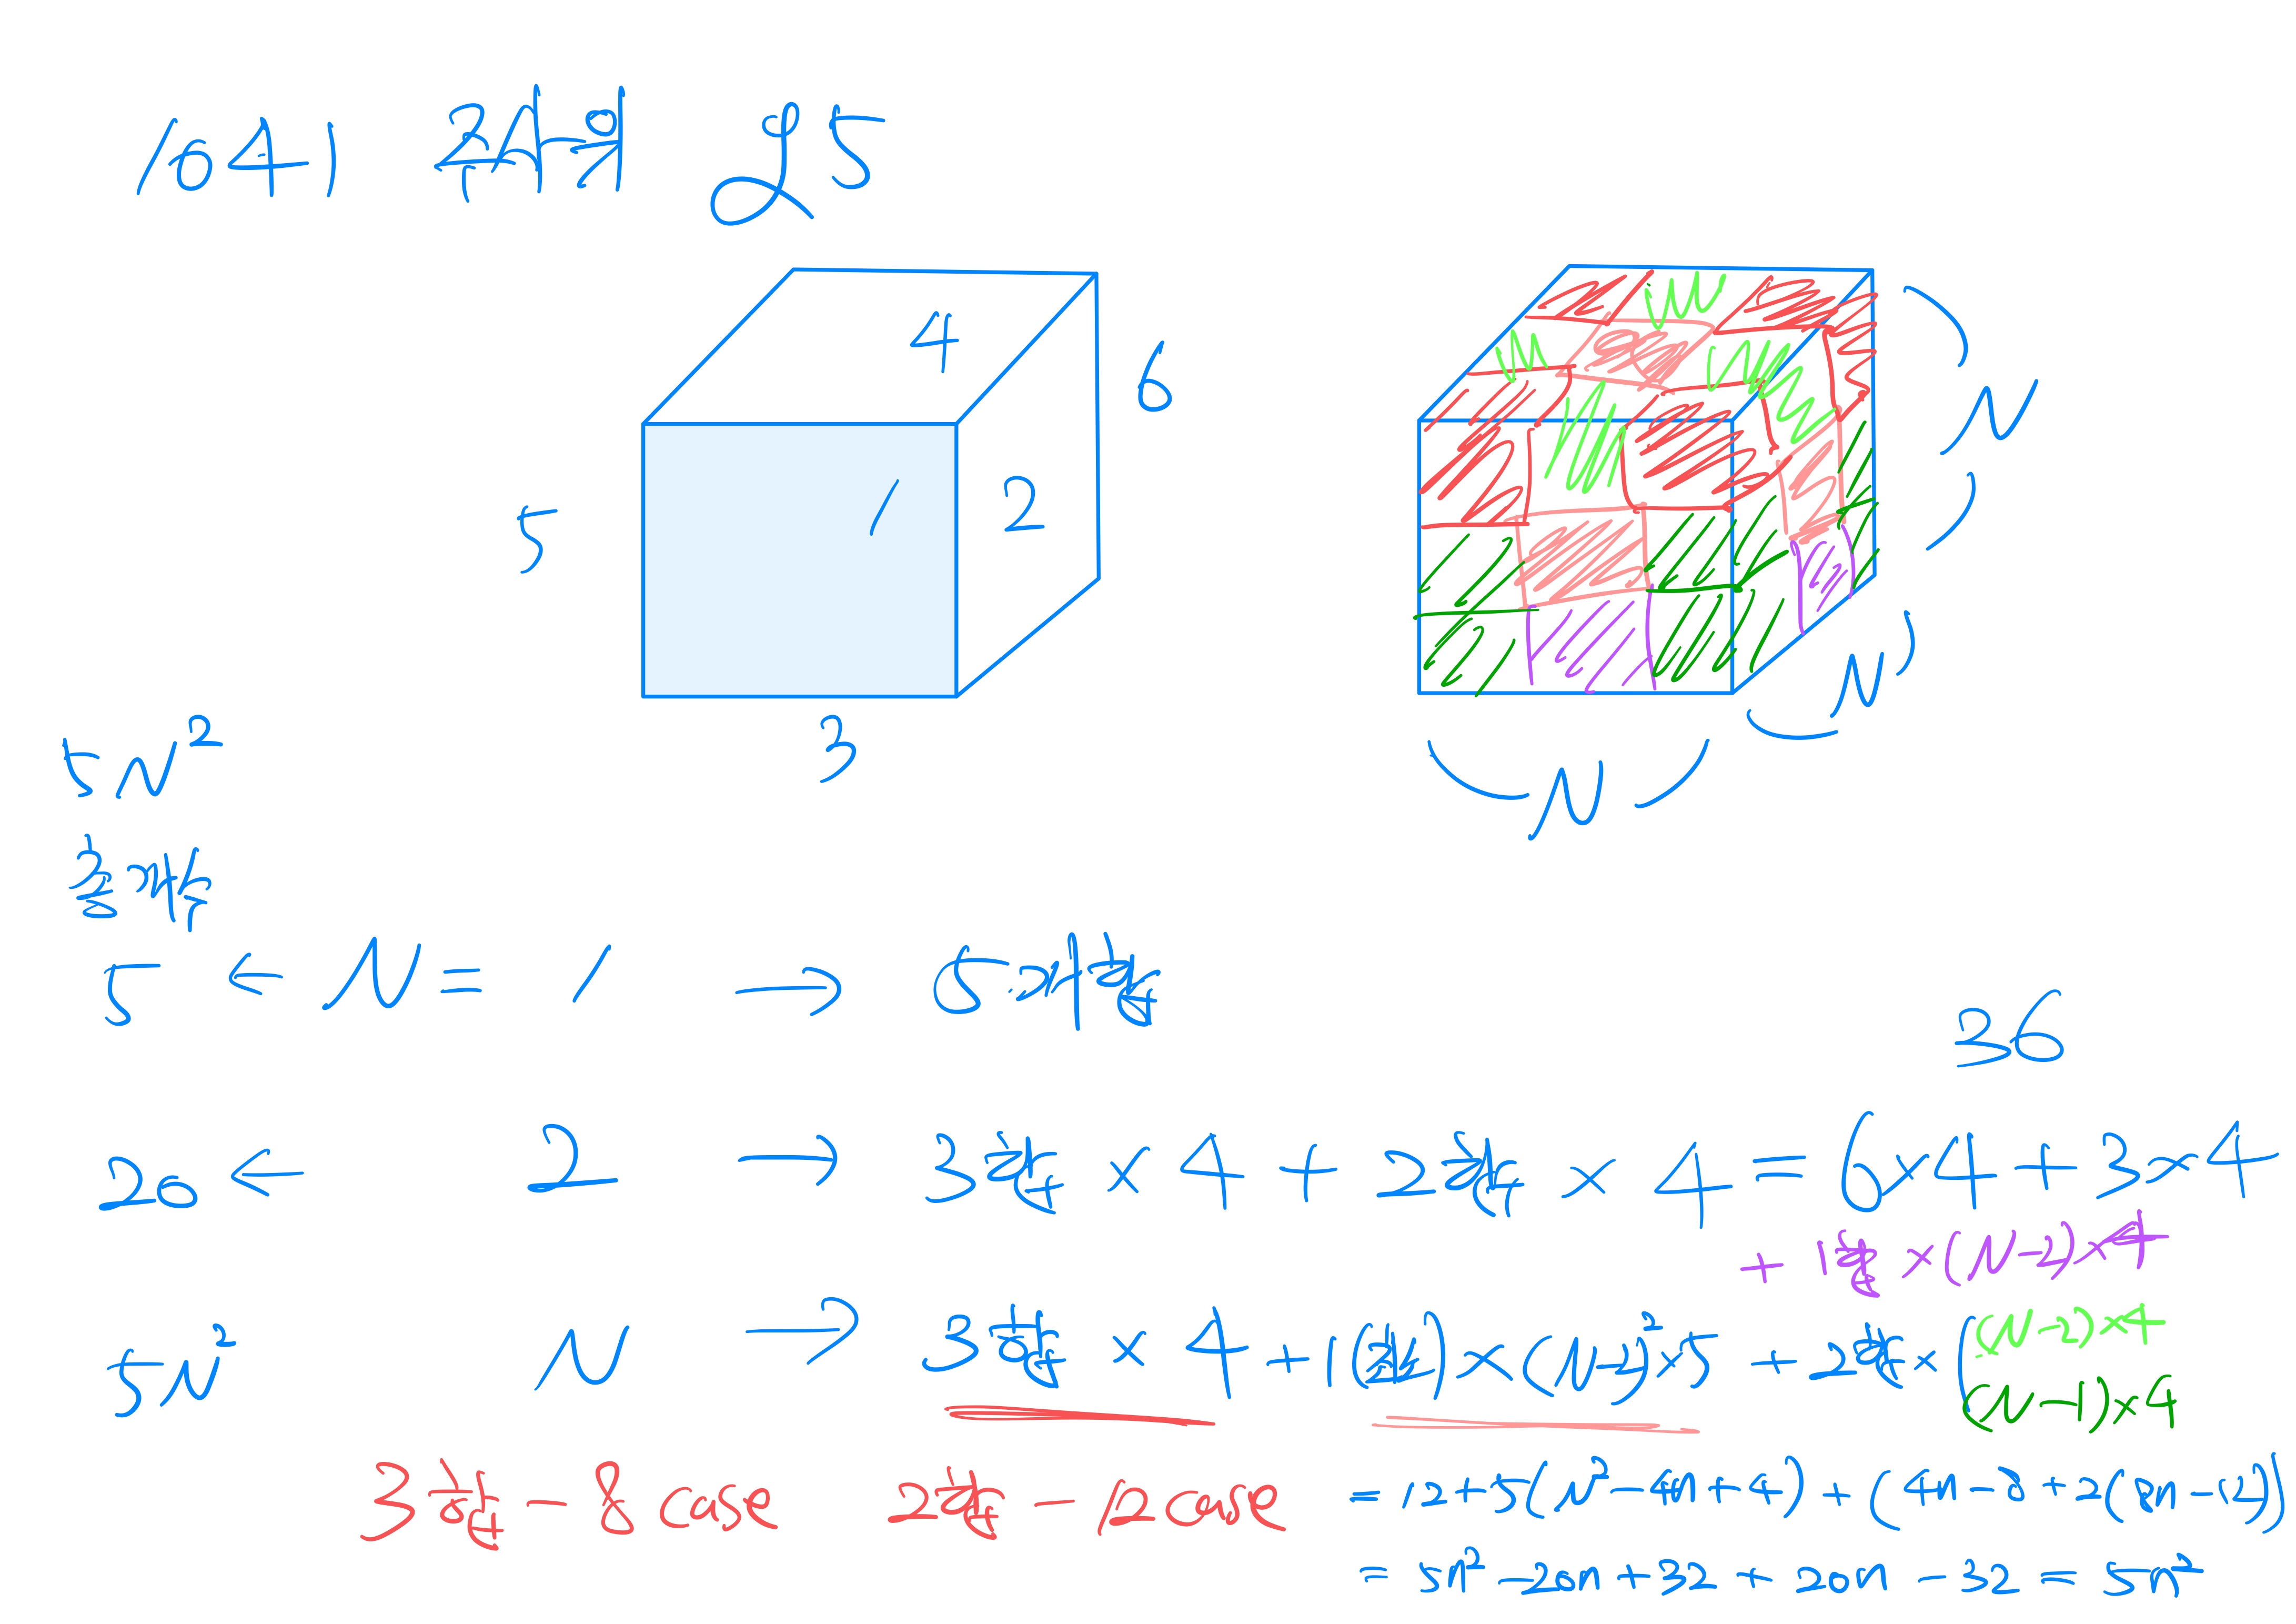 1041) 주사위 25
4
6
1
2
5
3
N
N
N
5N²
총 개수
5 ← N = 1 → 5개 합
36
20 ← 2 → 3합 × 4 + 2합 × 4 = 6×4 + 3×4
+ 1합 × (N-2)×4
5N² N → 3합 × 4 + 1(합) × (N-2)²×5 + 2합 × ((N-2)×4
(N-1)×4
3합 - 8 case 2합 - 12 case = 12+5(N²-4n+4) + (4n-8+2(8n-12))
= 5n²-20n+32 + 20n-32 = 5n²